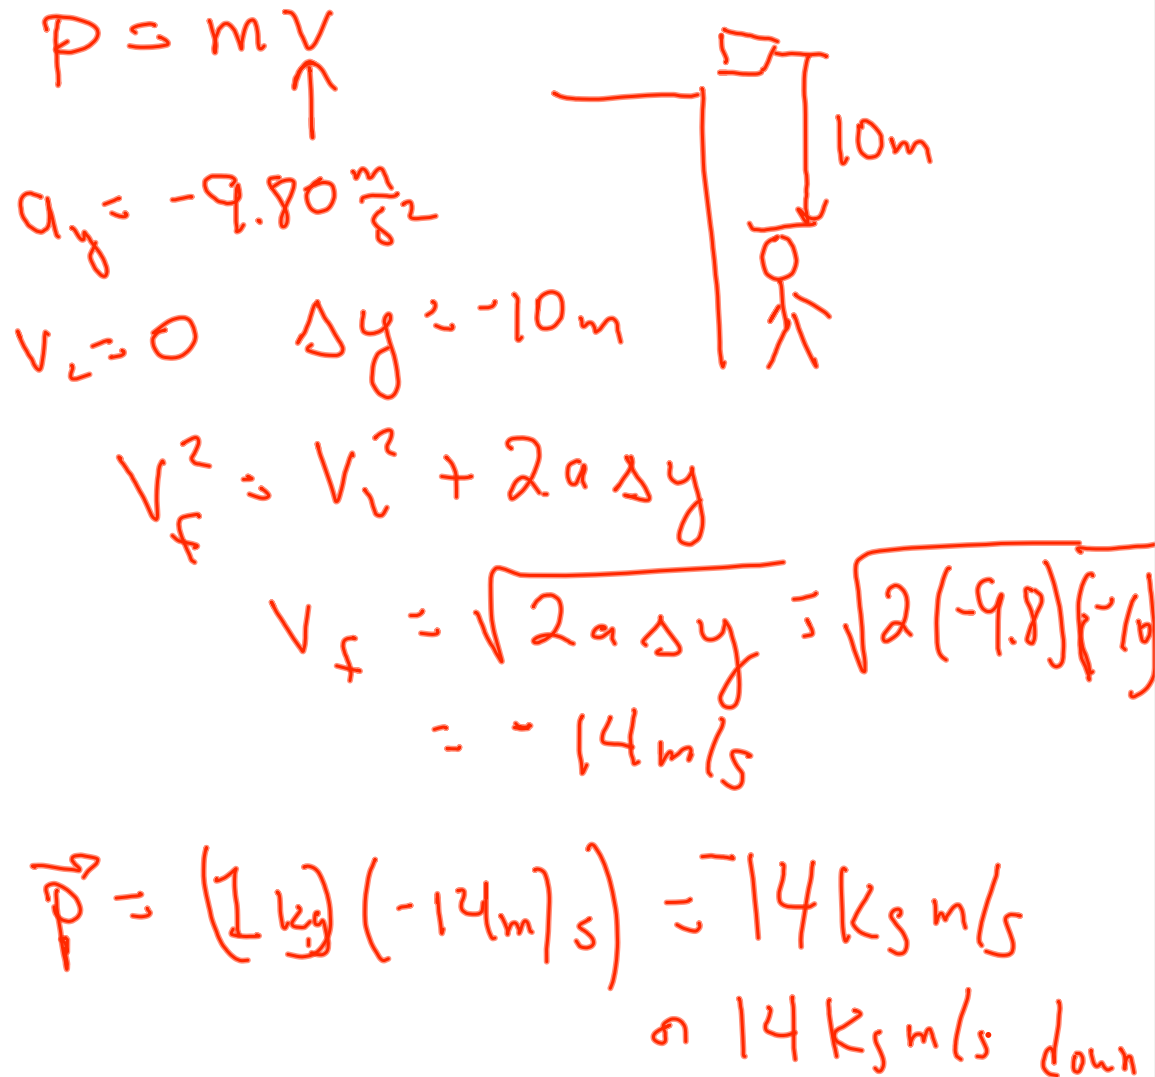 p = mv
10m
a_y = -9.80 m/s²
v_i = 0 Δy = -10m
v_f² = v_i² + 2aΔy
v_f = √2aΔy = √2(-9.8)(-10)
= -14m/s
p⃗ = (1kg)(-14m/s) = -14kg m/s
or 14kg m/s down